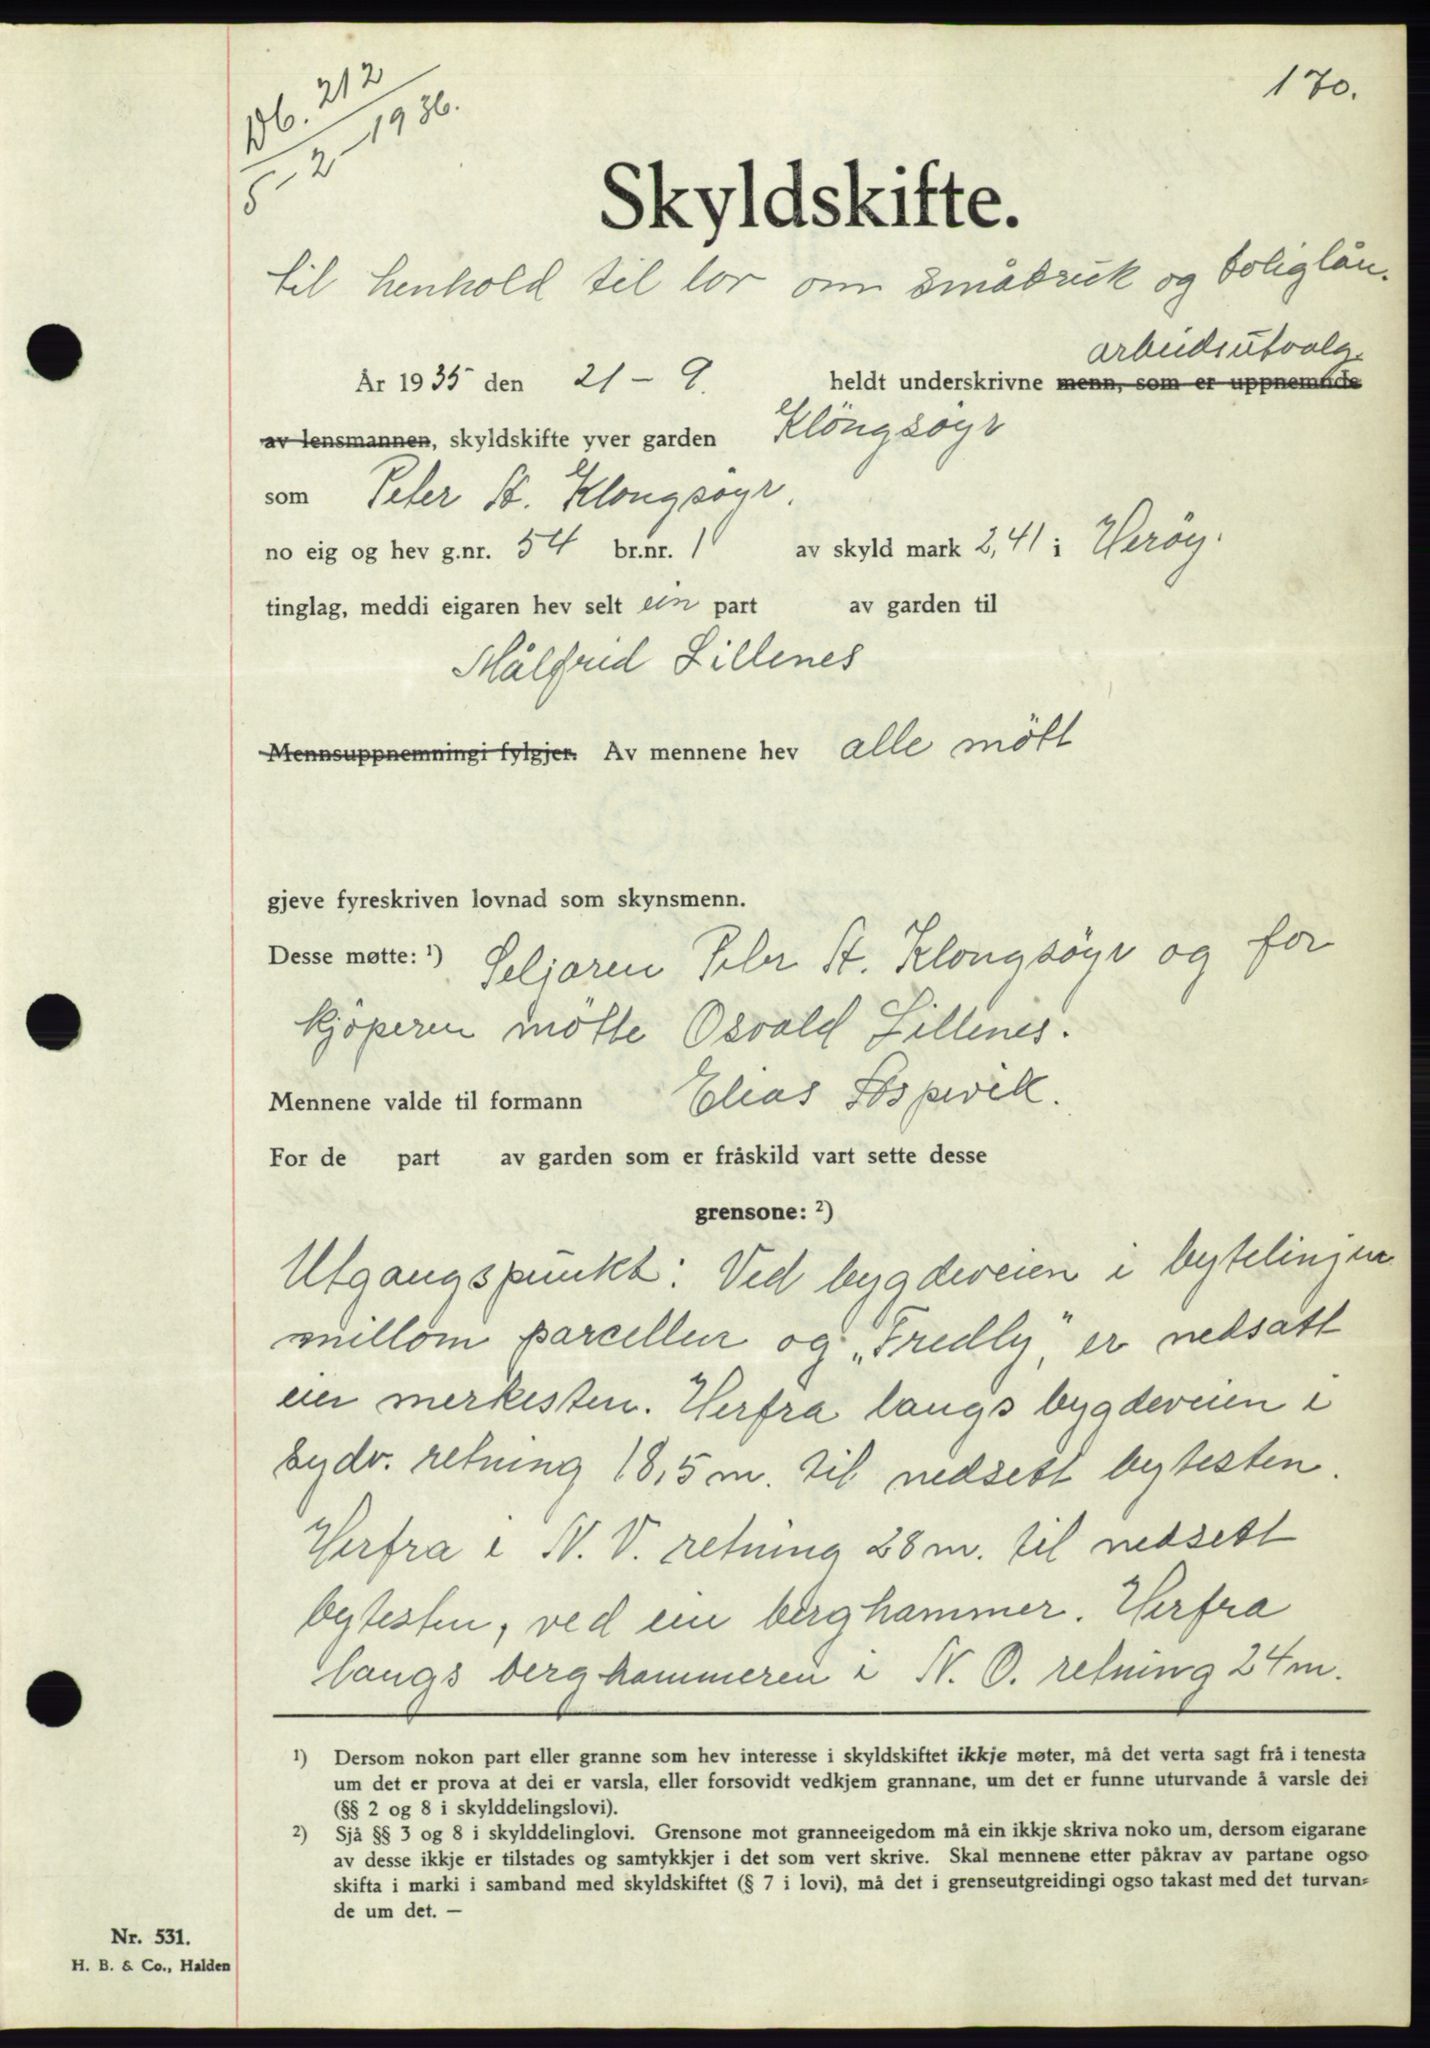 Db. 212
5-2-1936.
170.
Skyldskifte.
til henhold til lov om småbruk og boliglån.
arbeidsutvalg.
År 1935 den 21-9. heldt underskrivne menn, som er uppnemnde
av lensmannen, skyldskifte yver garden Klöngsöyr
som Peter St. Klongsöyr.
no eig og hev g.nr. 54 br.nr. 1 av skyld mark 2,41 i Heröy.
tinglag, meddi eigaren hev selt ein part av garden til
Målfrid Lillenes
Mennsuppnemningi fylgjer. Av mennene hev alle mött
gjeve fyreskriven lovnad som skynsmenn.
Desse møtte: ¹) Seljaren Peter St. Klongsöyr og for
kjöperen mötte Osvald Lillenes.
Mennene valde til formann Elias
For de part av garden som er fråskild vart sette desse
grensone: ²)
Utgangspunkt: Ved bygdeveien i bytelinjen
millom parcellen og „Fredly" er nedsatt
ein merkesten. Herfra langs bygdeveien i
sydv. retning 18,5 m. til nedsett bytesten.
Herfra i N. V. retning 28 m. til nedsett
bytesten, ved ein berghammer. Herfra
langs berghammeren i N. O. retning 24 m.
¹) Dersom nokon part eller granne som hev interesse i skyldskiftet ikkje møter, må det verta sagt frå i tenesta
um det er prova at dei er varsla, eller forsovidt vedkjem grannane, um det er funne uturvande å varsle dei
(§§ 2 og 8 i skylddelingslovi).
²) Sjå §§ 3 og 8 i skylddelinglovi. Grensone mot granneeigedom må ein ikkje skriva noko um, dersom eigarane
av desse ikkje er tilstades og samtykkjer i det som vert skrive. Skal mennene etter påkrav av partane ogso
skifta i marki i samband med skyldskiftet (§ 7 i lovi), må det i grenseutgreidingi ogso takast med det turvan-
de um det. —
Nr. 531.
H. B. & Co., Halden